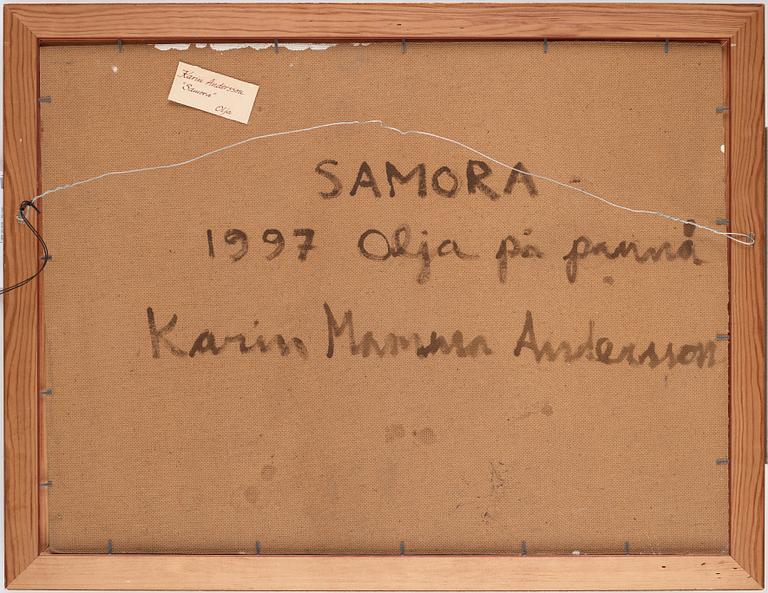 Karin Andersson
"Samora"
Olja
SAMORA
1997 Olja på pannå
Karin Mamma Andersson